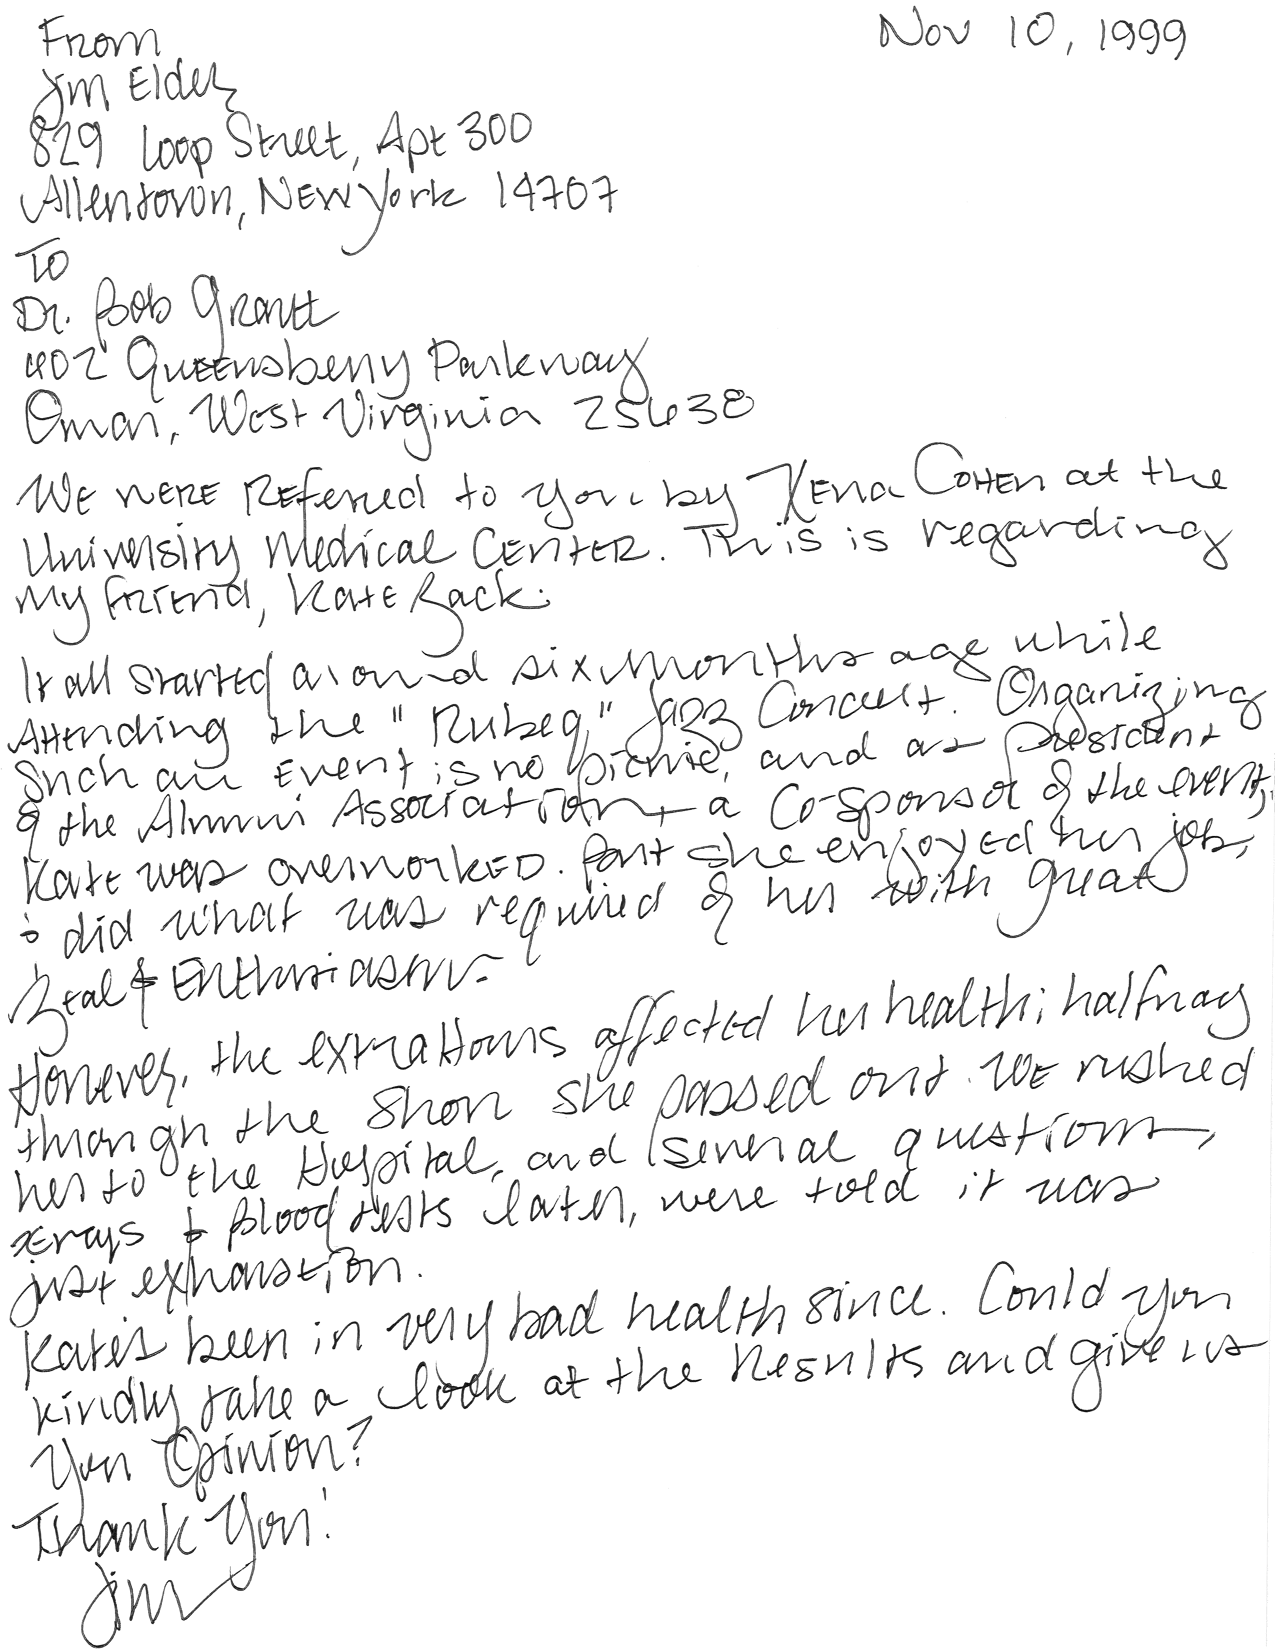 Nov 10, 1999
From
Jim Elder
829 Loop Street, Apt 300
Allentown, New York 14707
To
Dr. Bob Grant
402 Queensberry Parkway
Omar, West Virginia 25638
We were referred to you by Xena Cohen at the
University Medical Center. This is regarding
my friend, Kate Zack.
It all started around six months ago while
attending the "Rubeq" Jazz Concert. Organizing
such an event is no picnic, and as President
of the Alumni Association, a Co-sponsor of the event,
Kate was overworked. But she enjoyed her job,
& did what was required of her with great
zeal & enthusiasm.
However, the extra hours affected her health; halfway
through the show she passed out. We rushed
her to the hospital, and several questions,
x-rays & blood tests later, were told it was
just exhaustion.
Kate's been in very bad health since. Could you
kindly take a look at the results and give us
your opinion?
Thank You!
Jim